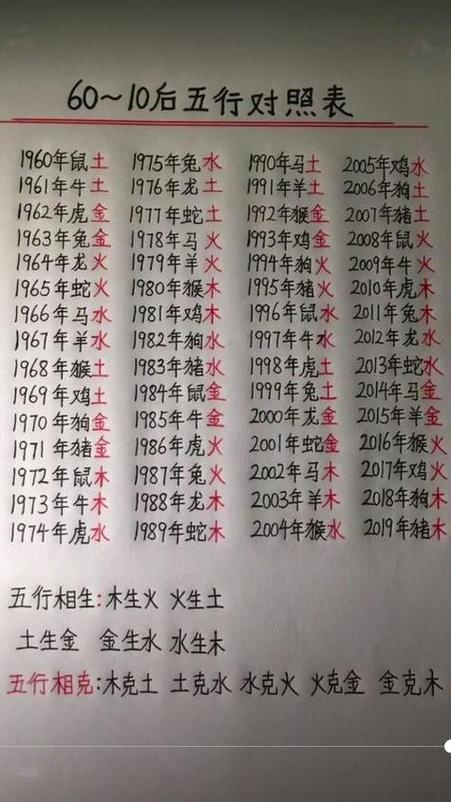 60~10后五行对照表
1960年鼠土 1975年兔水 1990年马土 2005年鸡水
1961年牛土 1976年龙土 1991年羊土 2006年狗土
1962年虎金 1977年蛇土 1992年猴金 2007年猪土
1963年兔金 1978年马火 1993年鸡金 2008年鼠火
1964年龙火 1979年羊火 1994年狗火 2009年牛火
1965年蛇火 1980年猴木 1995年猪火 2010年虎木
1966年马水 1981年鸡木 1996年鼠水 2011年兔木
1967年羊水 1982年狗水 1997年牛水 2012年龙水
1968年猴土 1983年猪水 1998年虎土 2013年蛇水
1969年鸡土 1984年鼠金 1999年兔土 2014年马金
1970年狗金 1985年牛金 2000年龙金 2015年羊金
1971年猪金 1986年虎火 2001年蛇金 2016年猴火
1972年鼠木 1987年兔火 2002年马木 2017年鸡火
1973年牛木 1988年龙木 2003年羊木 2018年狗木
1974年虎水 1989年蛇木 2004年猴水 2019年猪木
五行相生:木生火 火生土
土生金 金生水 水生木
五行相克:木克土 土克水 水克火 火克金 金克木